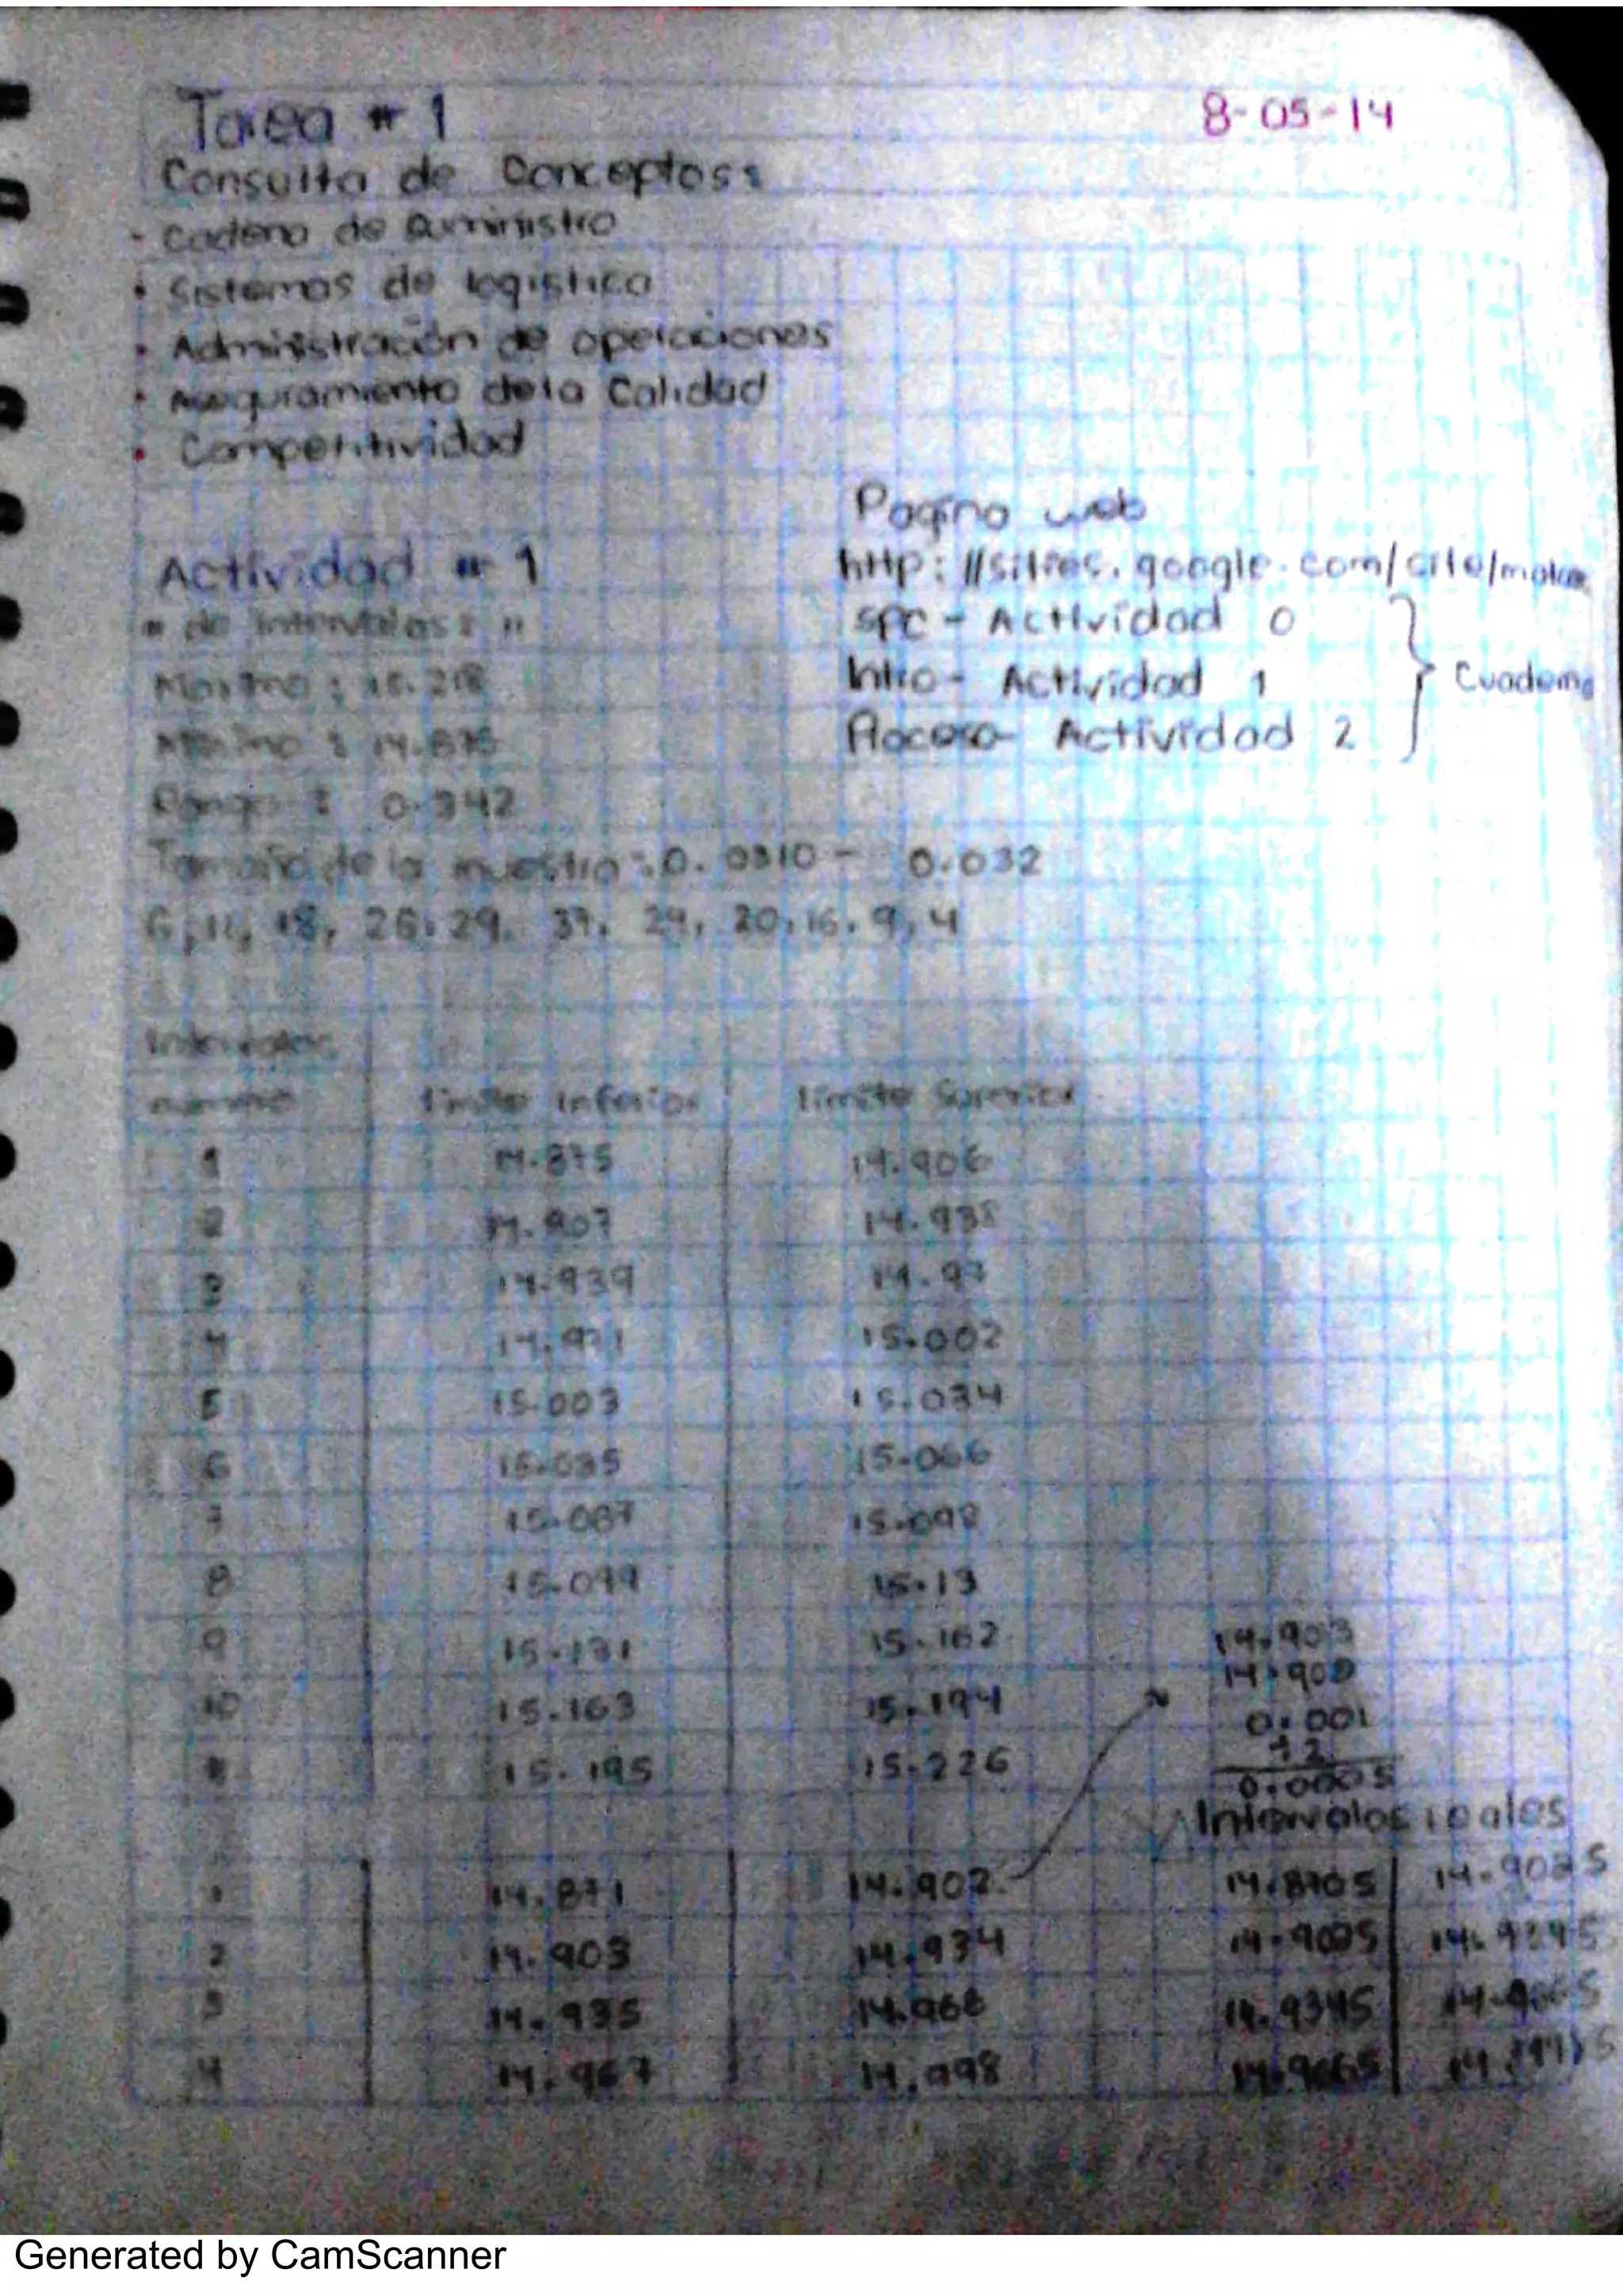 Tarea # 1
8-05-14
Consulta de Conceptos:
- Cadena de Suministro
• Sistemas de logistica
• Administración de operaciones
• Aseguramiento dela Calidad
• Competitividad
Pagina web
Actividad # 1
http://sites.google.com/site/
# de intervalos: 11
SPC - Actividad 0
Maximo: 15.218
Intro - Actividad 1
Cuaderno
Minimo: 14.875
Actividad 2
Rango: 0.342
Tamaño de la muestra: 0.0310 - 0.032
6, 11, 18, 26, 29, 37, 29, 20, 16, 9, 4
Intervalos
numero limite inferior limite Superior
1 14.875 14.906
2 14.907 14.938
3 14.939 14.97
4 14.971 15.002
5 15.003 15.034
6 15.035 15.066
7 15.067 15.098
8 15.099 15.13
9 15.131 15.162
10 15.163 15.194
15.195 15.226
14.903
14.902
0.001
÷2
0.0005
Intervalos reales
1 14.871 14.902 14.8705 14.9025
2 14.903 14.934 14.9025 14.9345
3 14.935 14.966 14.9345 14.9665
4 14.967 14.998 14.9665
Generated by CamScanner